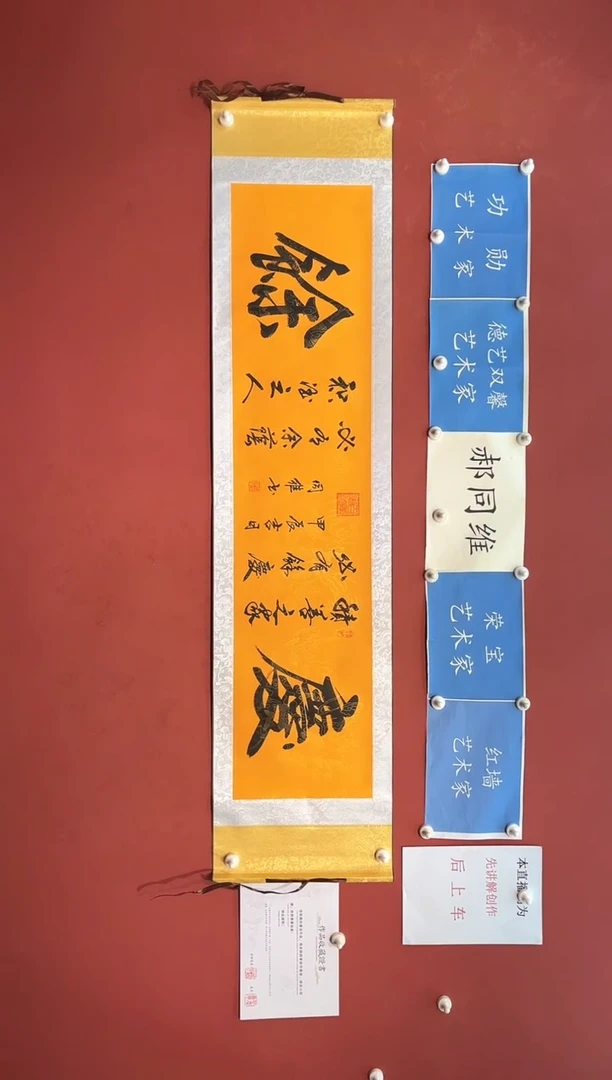 功勋
艺术家
德艺双馨
艺术家
郝同维
荣宝
艺术家
红墙
艺术家
慶
積善之家
必有餘慶
甲辰吉月
同維书
必有余蔭
积德之人
餘
本直播间为
先讲解创作
后上车
作品收藏证书